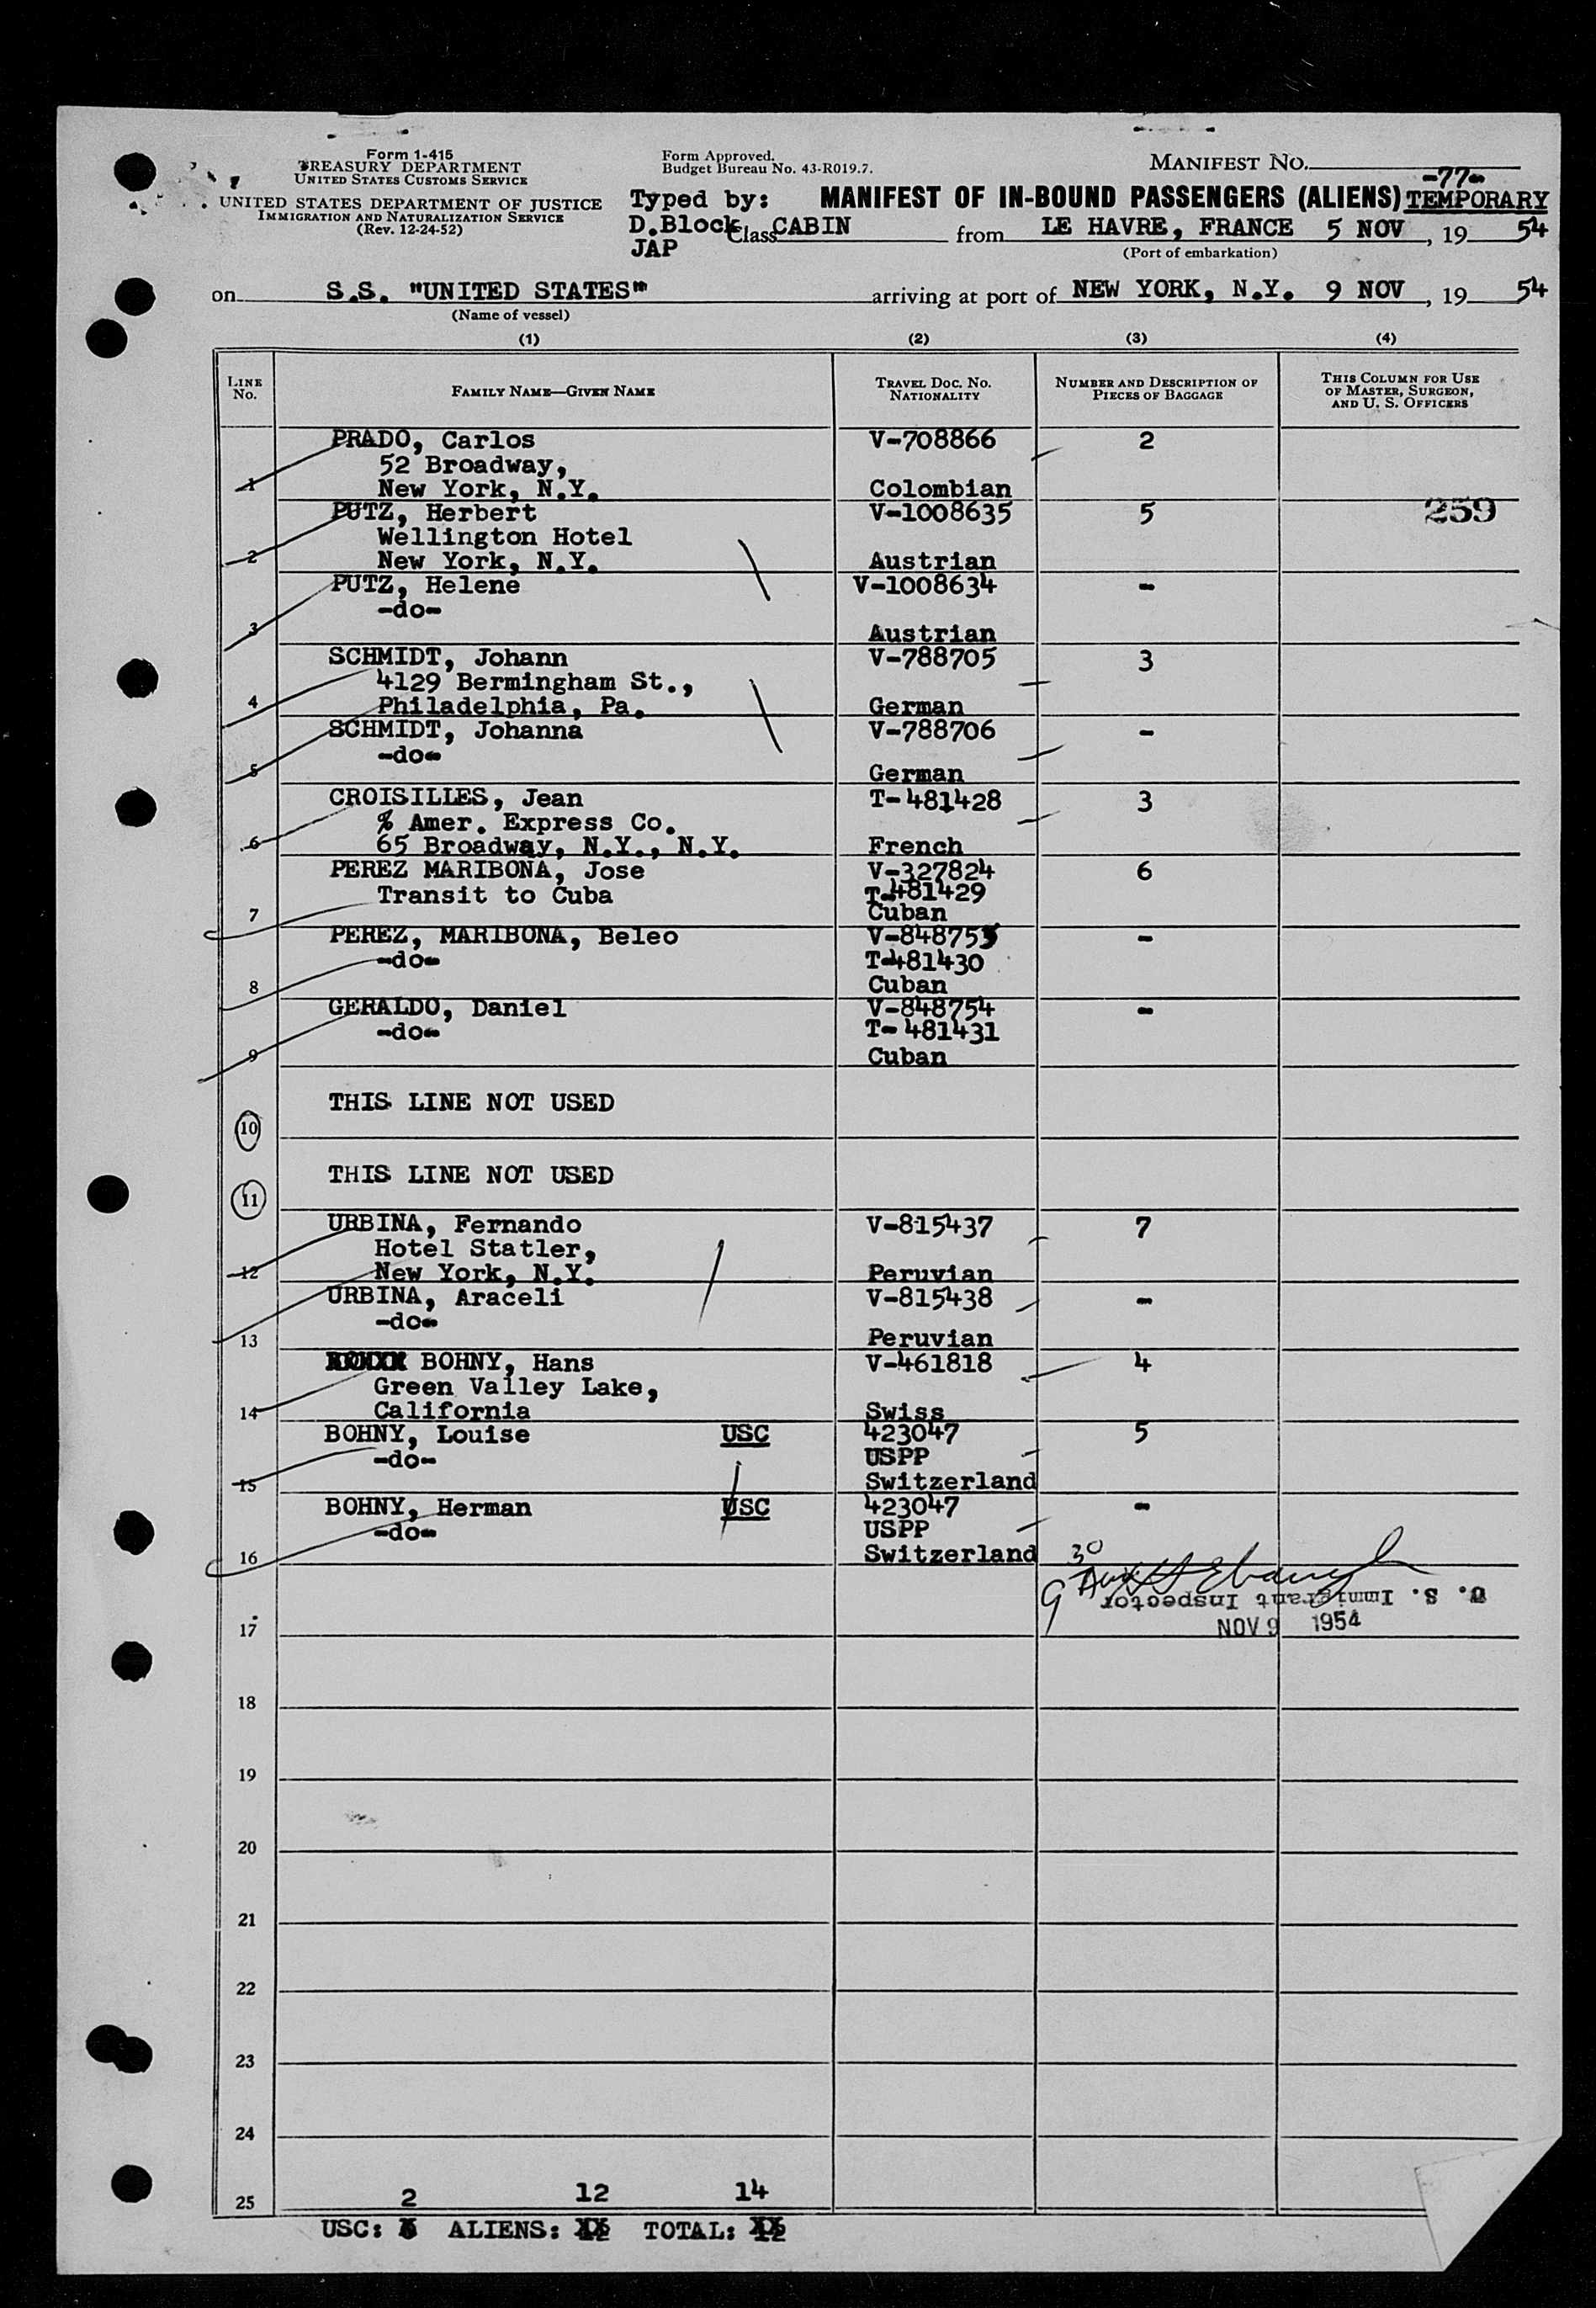 Form 1-415
TREASURY DEPARTMENT
UNITED STATES CUSTOMS SERVICE
UNITED STATES DEPARTMENT OF JUSTICE
IMMIGRATION AND NATURALIZATION SERVICE
(Rev. 12-24-52)
Form Approved.
Budget Bureau No. 43-R019.7.
MANIFEST NO.
-77-
Typed by: MANIFEST OF IN-BOUND PASSENGERS (ALIENS) TEMPORARY
D.Block Class CABIN from LE HAVRE, FRANCE 5 NOV, 19 54
JAP (Port of embarkation)
on S.S. "UNITED STATES" arriving at port of NEW YORK, N.Y. 9 NOV, 19 54
(Name of vessel)
(1) (2) (3) (4)
LINE No. FAMILY NAME—GIVEN NAME TRAVEL DOC. NO. NATIONALITY NUMBER AND DESCRIPTION OF PIECES OF BAGGAGE THIS COLUMN FOR USE OF MASTER, SURGEON, AND U. S. OFFICERS
PRADO, Carlos V-708866 2
52 Broadway,
1 New York, N.Y. Colombian
PUTZ, Herbert V-1008635 5 259
Wellington Hotel
2 New York, N.Y. Austrian
PUTZ, Helene V-1008634 -
-do-
3 Austrian
SCHMIDT, Johann V-788705 3
4129 Bermingham St.,
4 Philadelphia, Pa. German
SCHMIDT, Johanna V-788706 -
-do-
5 German
CROISILLES, Jean T-481428 3
% Amer. Express Co.
6 65 Broadway, N.Y., N.Y. French
PEREZ MARIBONA, Jose V-327824 6
Transit to Cuba T-481429
7 Cuban
PEREZ, MARIBONA, Beleo V-848753 -
-do- T-481430
8 Cuban
GERALDO, Daniel V-848754 -
-do- T-481431
9 Cuban
THIS LINE NOT USED
10
THIS LINE NOT USED
11
URBINA, Fernando V-815437 7
Hotel Statler,
12 New York, N.Y. Peruvian
URBINA, Araceli V-815438 -
-do-
13 Peruvian
BOHNY, Hans V-461818 4
Green Valley Lake,
14 California Swiss
BOHNY, Louise USC 423047 5
-do- USPP
15 Switzerland
BOHNY, Herman USC 423047 -
-do- USPP
16 Switzerland
30
9
U. S. Immigrant Inspector
17 NOV 9 1954
18
19
20
21
22
23
24
25 2 12 14
USC: ALIENS: TOTAL: